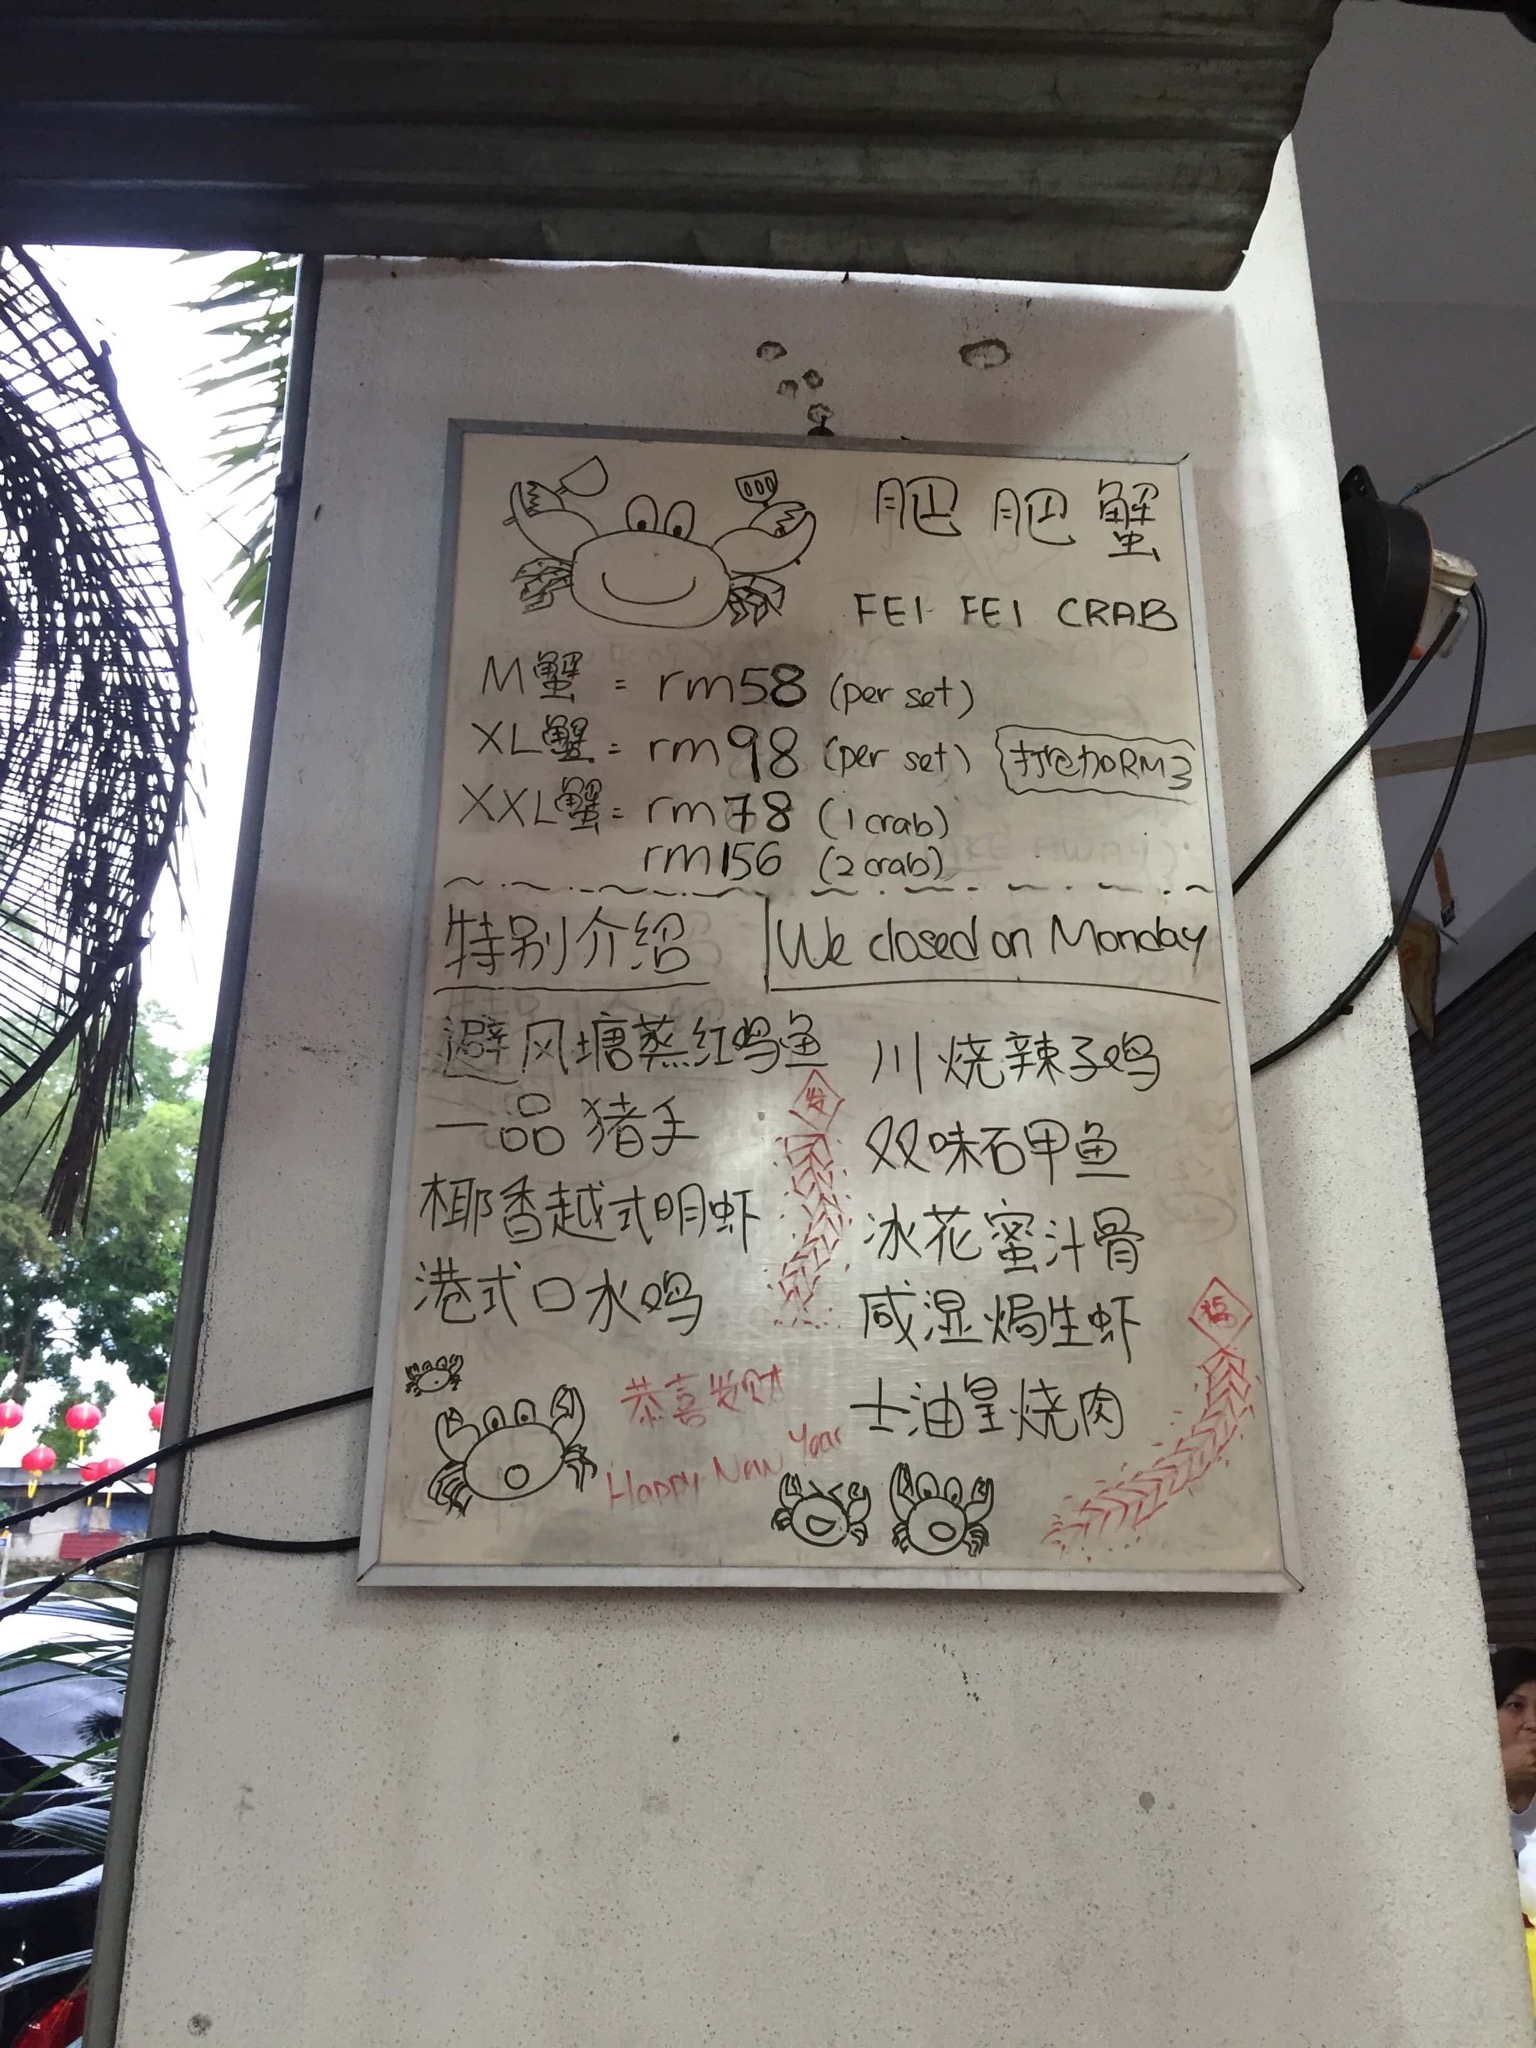 肥肥蟹
FEI FEI CRAB
M蟹 = rm58 (per set)
XL蟹 = rm98 (per set)
打包加RM3
XXL蟹 = rm78 (1 crab)
rm156 (2 crab)
特别介绍
We closed on Monday
避风塘蒸红鸡鱼
一品猪手
椰香越式明虾
港式口水鸡
川烧辣子鸡
双味石甲鱼
冰花蜜汁骨
咸湿焗生虾
士油皇烧肉
发
福
恭喜发财
Happy New Year